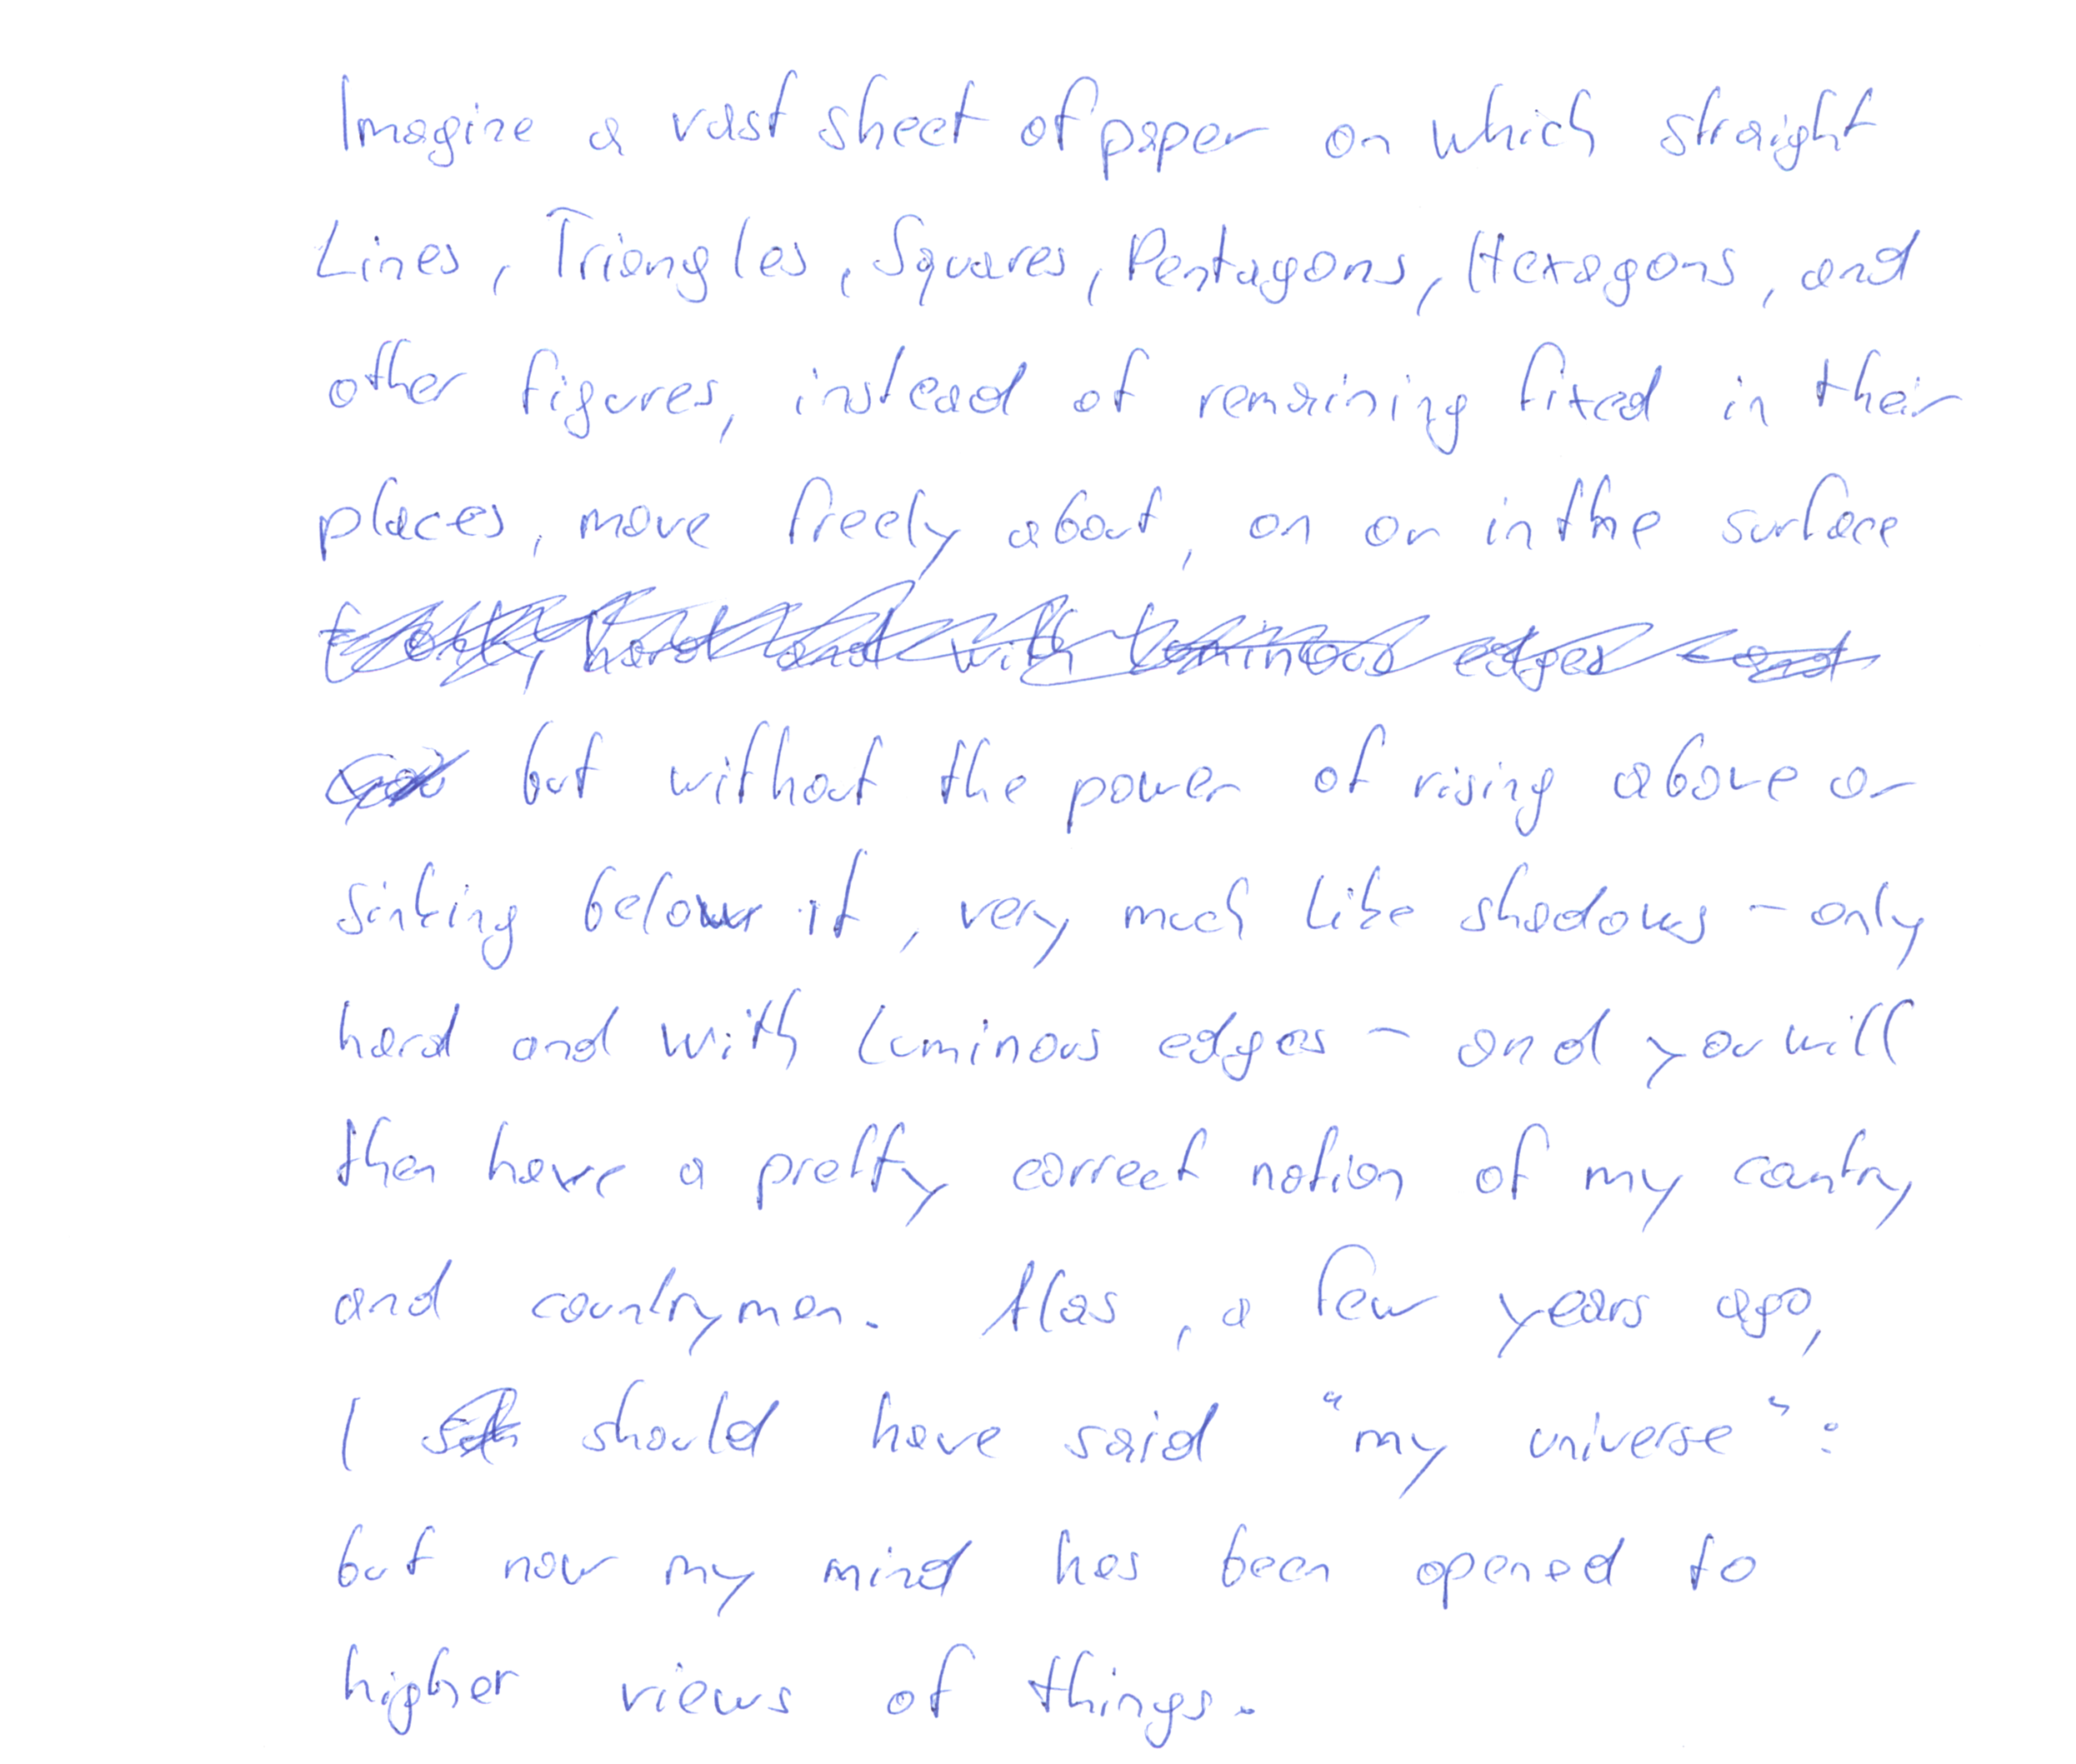 Imagine a vast sheet of paper on which straight
Lines, Triangles, Squares, Pentagons, Hexagons, and
other figures, instead of remaining fixed in their
places, move freely about, on or in the surface
hard and with luminous edges and
but without the power of rising above or
sinking below it, very much like shadows - only
hard and with luminous edges - and you will
then have a pretty correct notion of my country
and countrymen. Alas, a few years ago,
I should have said "my universe":
but now my mind has been opened to
higher views of things.